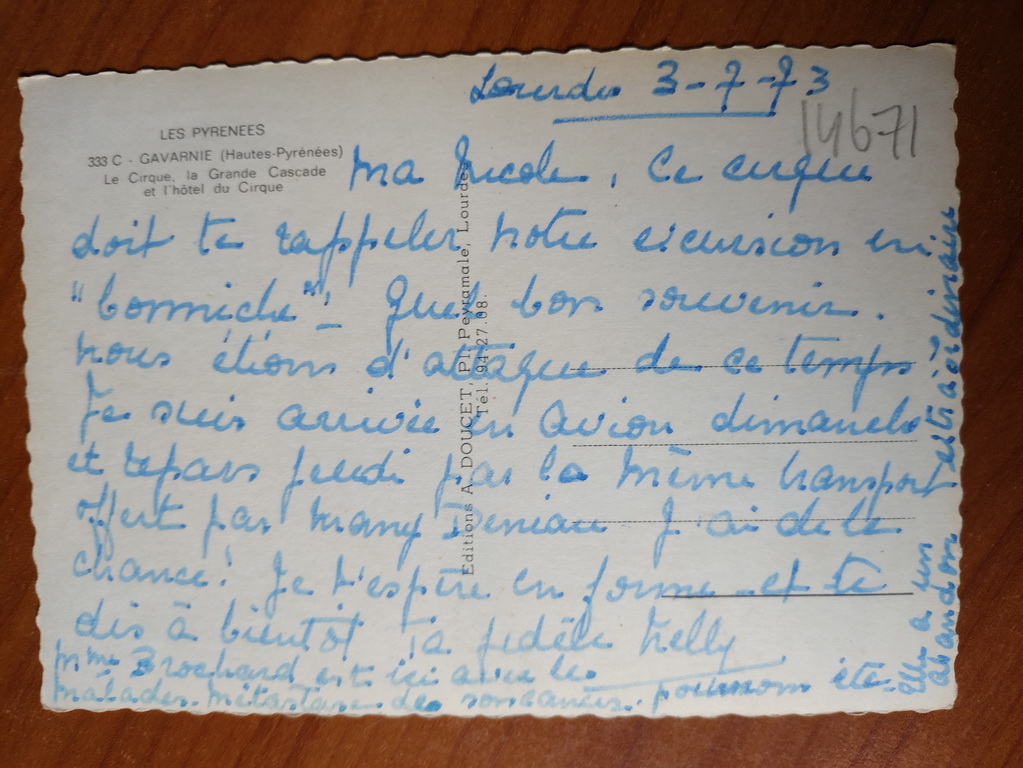 Lourdes 3-7-73
14671
LES PYRENEES
333 C - GAVARNIE (Hautes-Pyrénées)
Le Cirque, la Grande Cascade
et l'hôtel du Cirque
Editions A. DOUCET, Pl. Peyramale, Lourdes
Tél. 94 27.08.
Ma Nicole, Ce cirque
doit te rappeler notre excursion en
"bonniche" - Quel bon souvenir.
nous étions d'attaque de ce temps
Je suis arrivée en avion dimanche
et repars jeudi par le même transport
offert par Many J'ai de la
chance! Je t'espère en forme et te
dis à bientôt Ta fidèle Nelly
Mme Brochard est ici avec les
malades. métastase de son cancer. poumons etc.
Elle a un
abandon extraordinaire